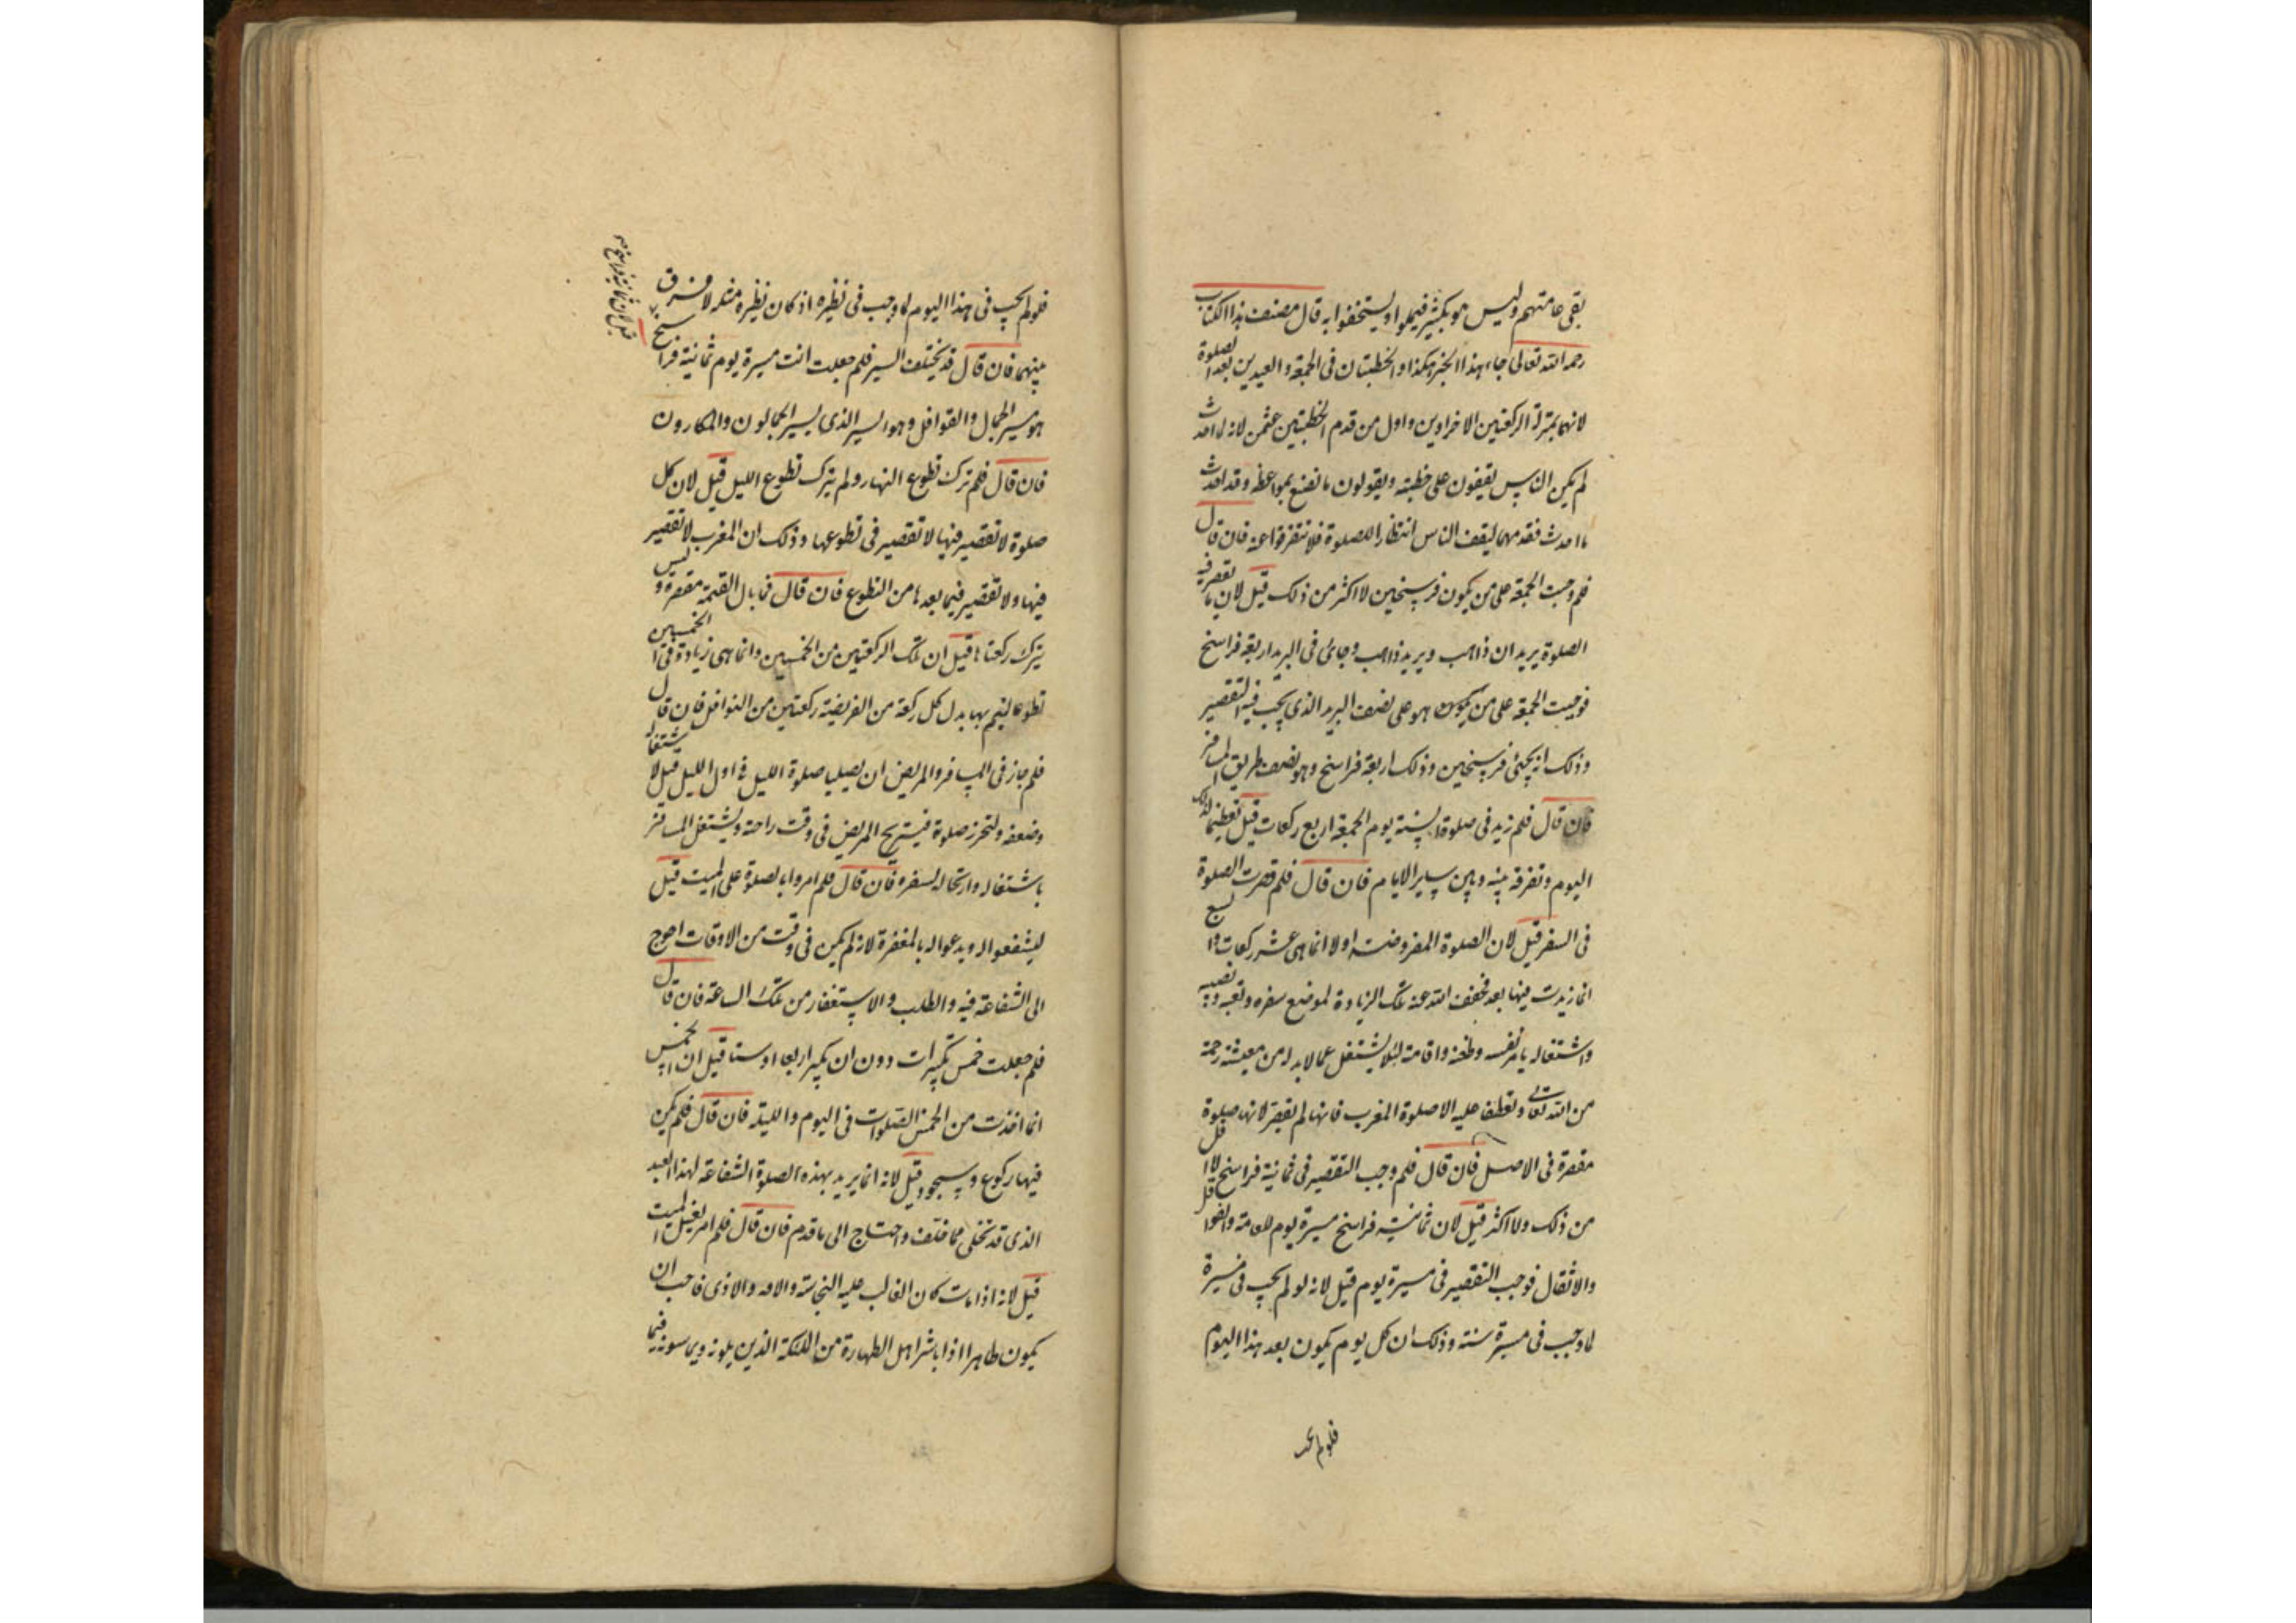 بقى عامتهم وليس هو بكثير فيملوا ويستخفوا به قال مصنف هذا الكتاب
رحمه الله تعالى جاء هذا الخبر هكذا والخطبتان فى الجمعة والعيدين بعد الصلوة
لانهما بمنزلة الركعتين الاخراوين واول من قدم الخطبتين عثمن لانه لما احدث
لم يكن الناس يقيفون على خطبته ويقولون ما نصنع بمواعظه وقد احدث
ما احدث فقدمهما ليقف الناس انتظارا للصلوة فلا تتفرقوا عنه فان قال
فلم وجبت الجمعة على من يكون فرسخين لا اكثر من ذلك قيل لان ما تقصر فيه
الصلوة بريدان ذاهب وبريد ذاهب وجائ فى البريد اربعة فراسخ
فوجبت الجمعة على من يكون هو على نصف البريد الذى يجب فيه التقصير
وذلك انه يجئ فرسخين وذلك اربعة فراسخ وهو نصف طريق المسافر
فان قال فلم زيد فى صلوة السنة يوم الجمعة اربع ركعات قيل تعظيما لذلك
اليوم وتفرقة بينه وبين ساير الايام فان قال فلم قصرت الصلوة
فى السفر قيل لان الصلوة المفروضة اولا انما هى عشر ركعات والسبع
انما زيدت فيها بعد فخفف الله عنه تلك الزيادة لموضع سفره وتعبه ونصبه
واشتغاله بامر نفسه وظعنه واقامته لئلا يشتغل عما لابد له من معيشته رحمة
من الله تعالى وتعطفا عليه الا صلوة المغرب فانها لم تقصر لانها صلوة
مقصرة فى الاصل فان قال فلم وجب التقصير فى ثمانية فراسخ لا اقل
من ذلك ولا اكثر قيل لان ثمانية فراسخ مسيرة يوم للعامة والقوافل
والاثقال فوجب التقصير فى مسيرة يوم قيل لانه لو لم يجب فى مسيرة
لما وجب فى مسيرة سنة وذلك ان كل يوم يكون بعد هذا اليوم
فلو لم يجب
فلو لم يجب فى هذا اليوم لما وجب فى نظيره اذ كان نظيره مثله لا فرق
بينهما فان قال قد يختلف السير فلم جعلت انت مسيرة يوم ثمانية فراسخ
هو مسير الجمال والقوافل وهو السير الذى يسير الجمالون والمكارون
فان قال فلم ترك تطوع النهار ولم يترك تطوع الليل قيل لان كل
صلوة لا تقصير فيها لا تقصير فى تطوعها وذلك ان المغرب لا تقصير
فيها ولا تقصير فيما بعدها من التطوع فان قال فما بال العتمة مقصرة وليس
يترك ركعتاها قيل ان تلك الركعتين من الخمسين وانما هى زيادة فى الخمسين
تطوعا ليتم بها بدل كل ركعة من الفريضة ركعتين من النوافل فان قال
فلم جاز فى المسافر والمريض ان يصليا صلوة الليل فى اول الليل قيل لاشتغاله
وضعفه وليحرز صلوة فيستريح المريض فى وقت راحته ويشتغل المسافر
باشتغاله وارتحاله لسفره فان قال فلم امروا بالصلوة على الميت قيل
ليشفعوا له ويدعوا له بالمغفرة لانه لم يكن فى وقت من الاوقات احوج
الى الشفاعة فيه والطلب والاستغفار من تلك الساعة فان قال
فلم جعلت خمس تكبيرات دون ان يكبر اربعا او ستا قيل ان الخمس
انما اخذت من الخمس الصلوات فى اليوم والليلة فان قال فلم لم يكن
فيها ركوع وسجود قيل لانه انما يريد بهذه الصلوة الشفاعة لهذا العبد
الذى قد تخلى مما خلف واحتاج الى ما قدم فان قال فلم امر بغسل الميت
قيل لانه اذا مات كان الغالب عليه النجاسة والافه والاذى فاحب ان
يكون طاهرا اذا باشر اهل الطهارة من الملئكة الذين يلونه ويماسونه فيما